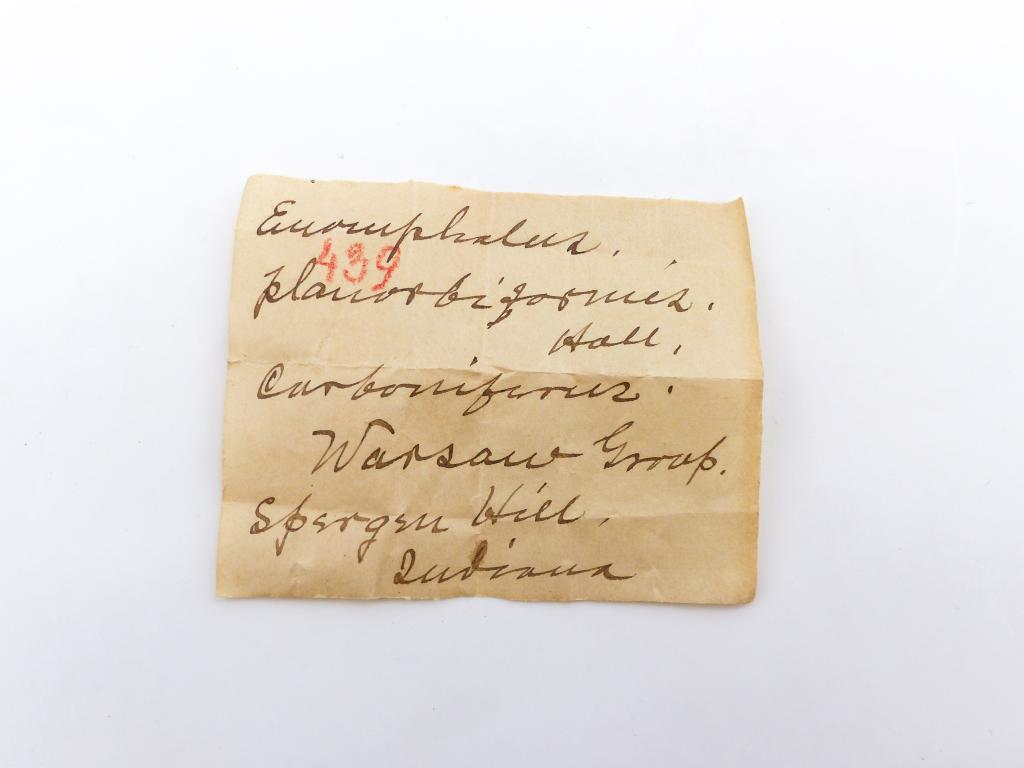 Euomphalus.
439
planorbiformis.
Hall.
Carboniferus.
Warsaw Group.
Spergen Hill.
Indiana